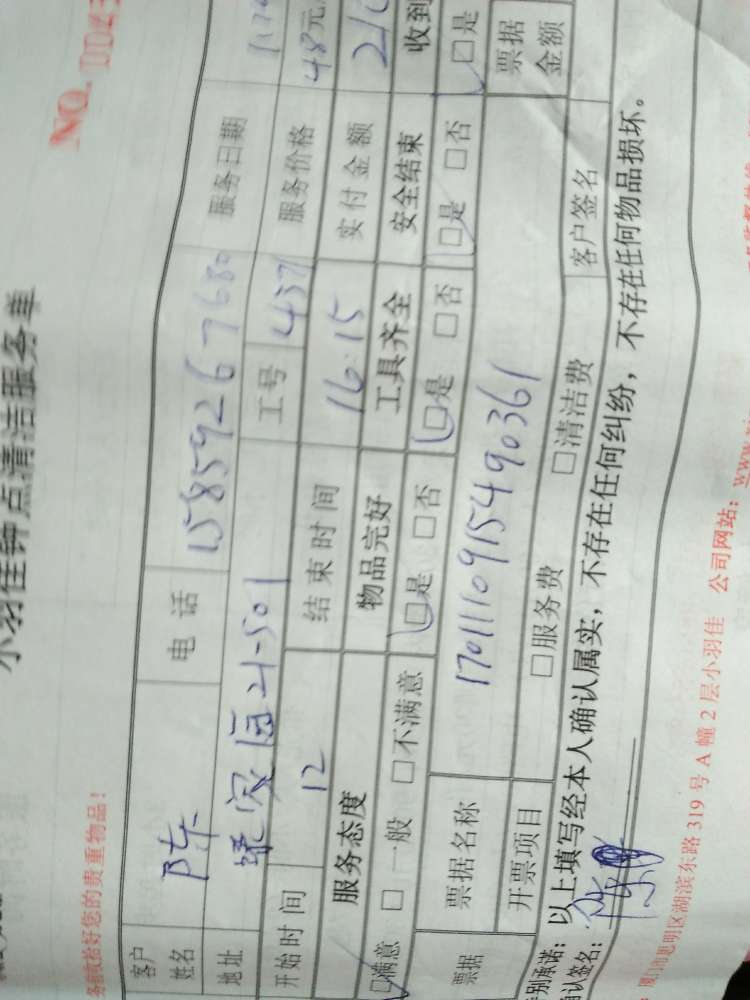 小羽佳钟点清洁服务单
NO. 0043
务前收拾好您的贵重物品!
客户姓名 陈 电话 15859267680 服务日期
地址 21-501 工号 4371 服务价格 48元
开始时间 12 结束时间 16:15 实付金额 210
服务态度 物品完好 工具齐全 安全结束 收到
□满意 □一般 □不满意 □是 □否 □是 □否 □是 □否 □是
票据 票据名称 170111091549 0361 票据金额
开票项目 □服务费 □清洁费 客户签名
别承诺:以上填写经本人确认属实,不存在任何纠纷,不存在任何物品损坏。
确认签名:
厦门市思明区湖滨东路 319 号 A 幢 2 层小羽佳 公司网站:www.